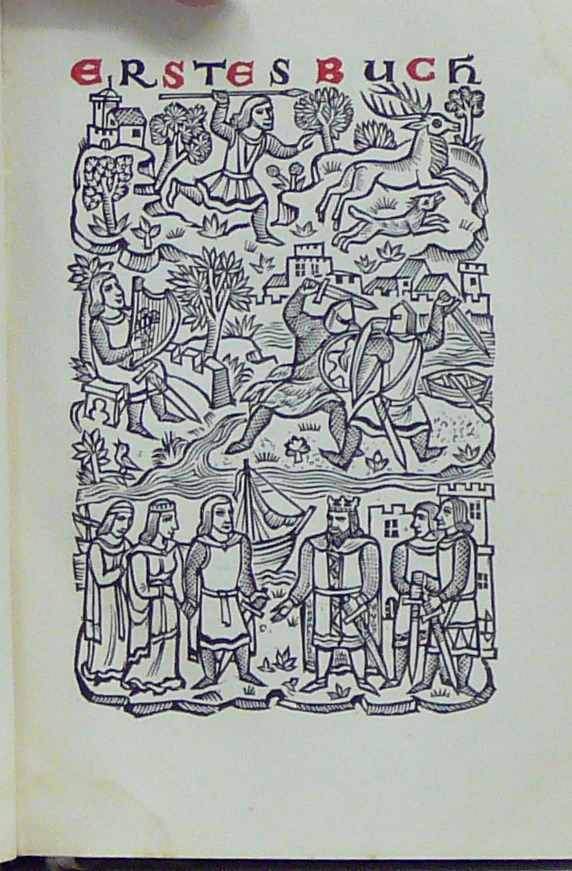 ERSTES BUCH